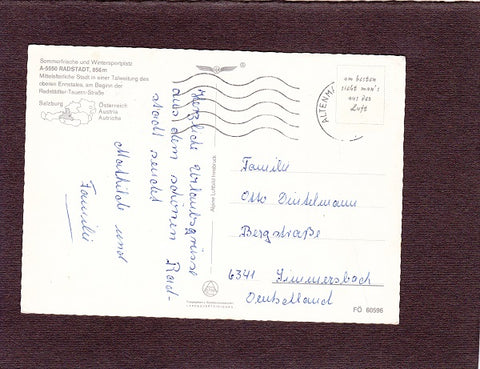 Sommerfrische und Wintersportplatz
A-5550 RADSTADT, 856m
Mittelalterliche Stadt in einer Talweitung des
oberen Ennstales, am Beginn der
Radstädter Tauern-Straße
Salzburg
Österreich
Austria
Autriche
Herzliche Urlaubsgrüsse
aus dem schönen Rad-
stadt sendet
Mathilde und
Familie
Alpine Luftbild Innsbruck
ALTENM
am besten
sieht man's
aus der
Luft
Familie
Otto Dintelmann
Bergstraße
6341 Simmersbach
Deutschland
FÖ 60596